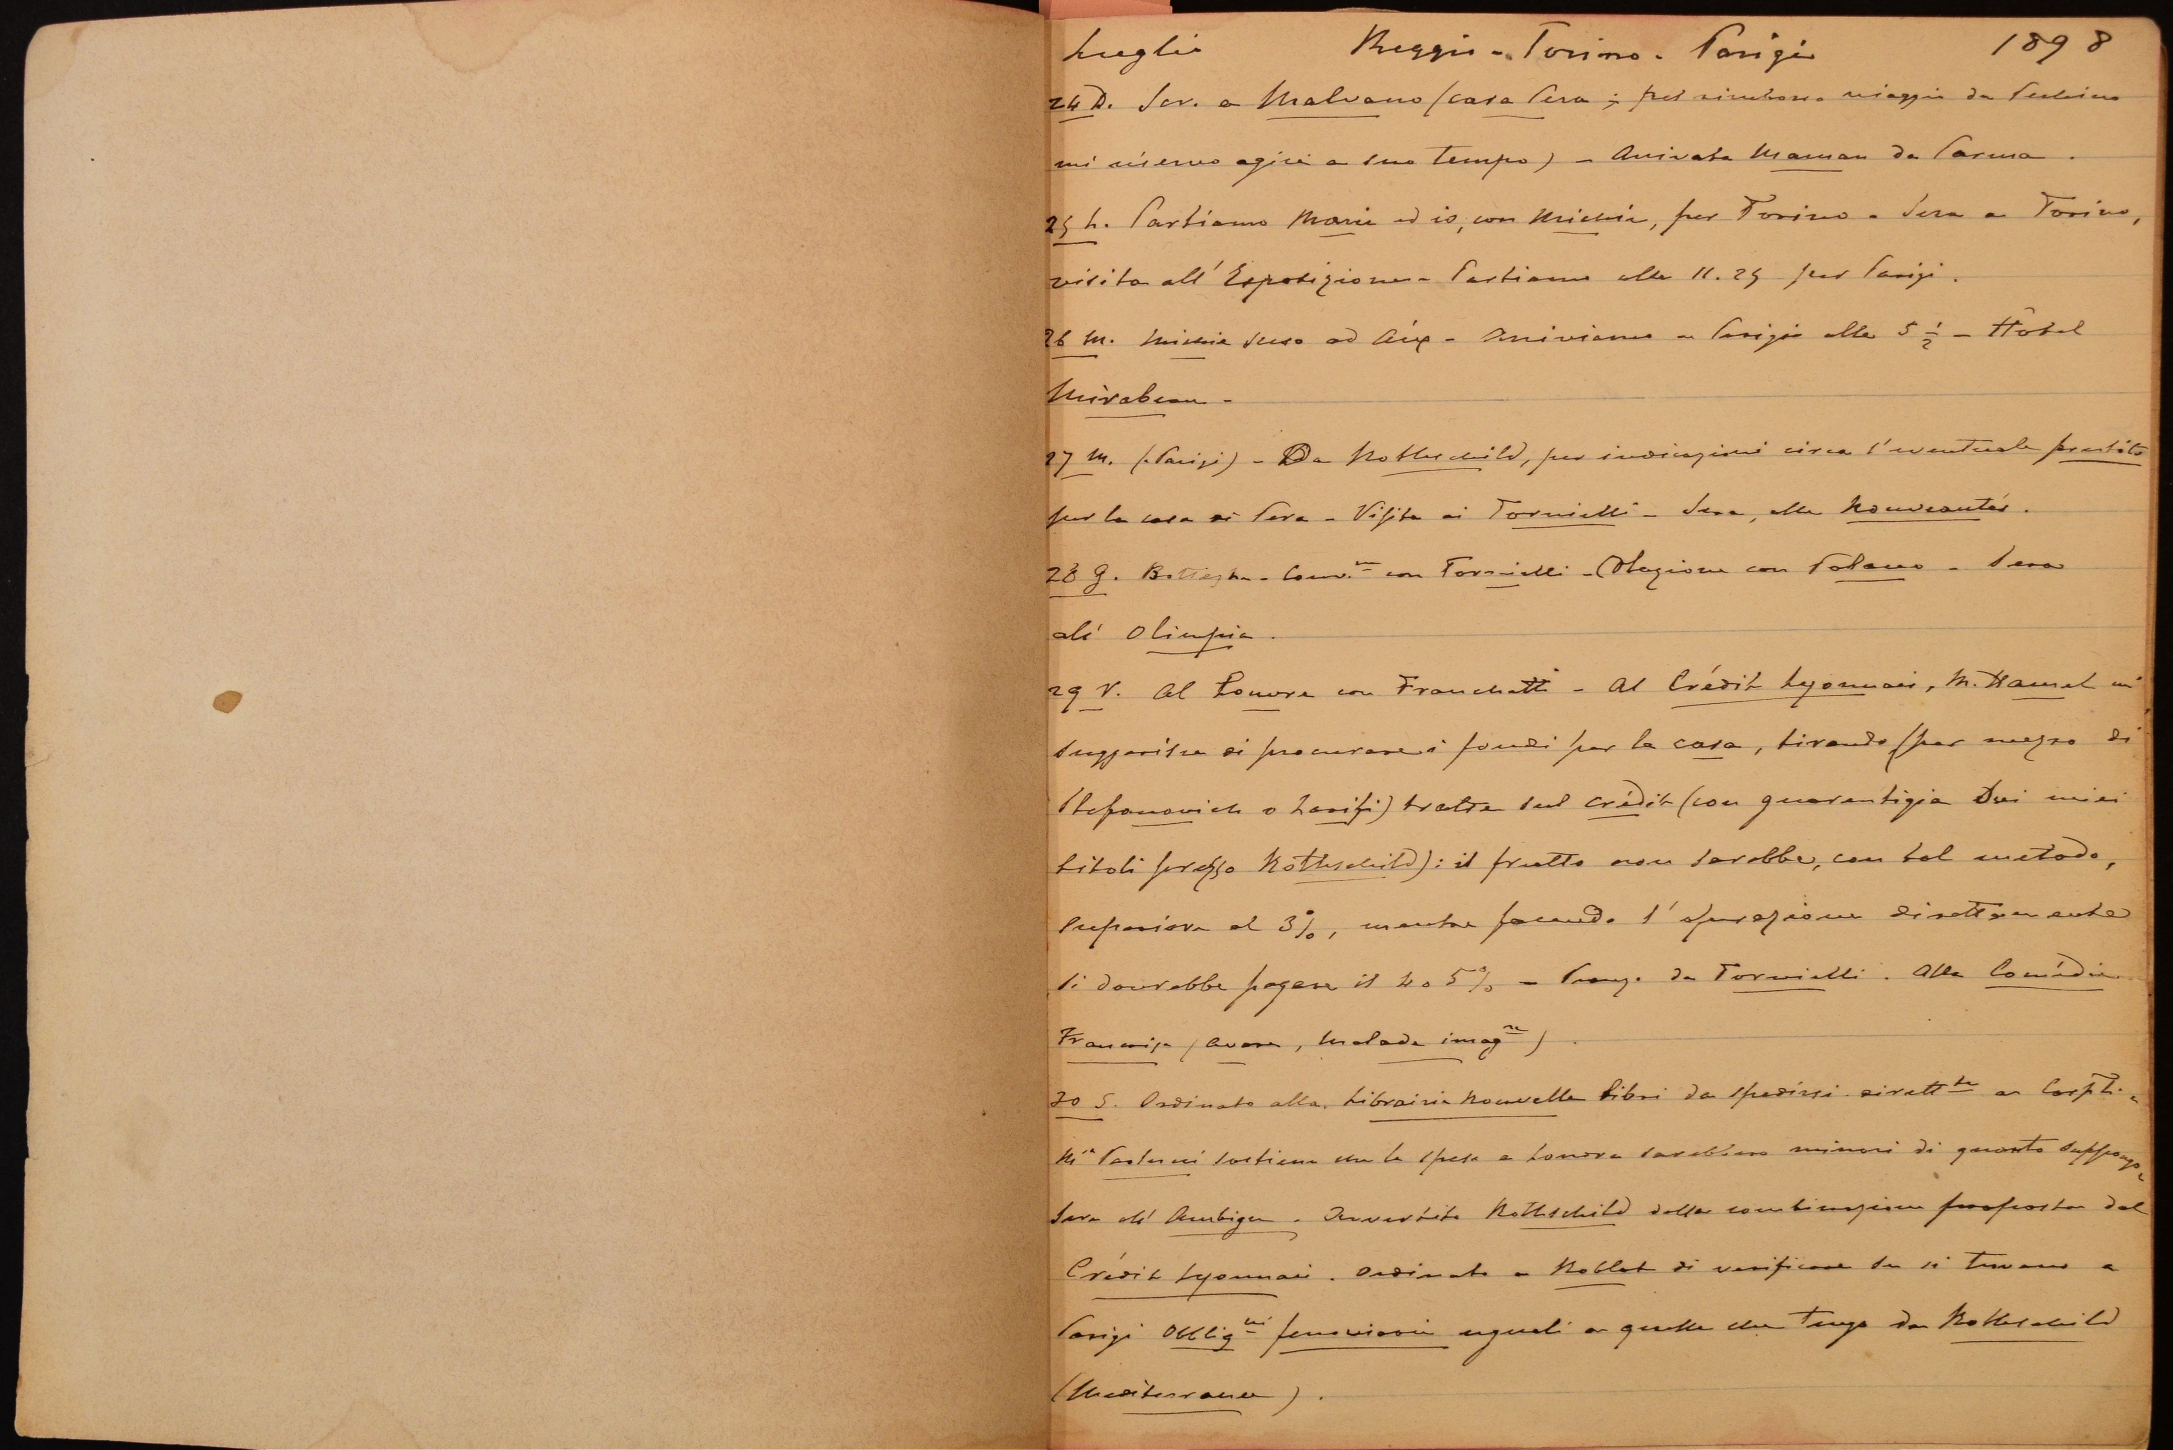 Luglio Reggio - Torino - Parigi 1898
24 D. Scr. a Malvano (casa Pera ; pel rimborso viaggio da Pechino
mi riservo agire a suo tempo) - Arrivata Maman da Parma .
25 L. Partiamo Marie ed io, con Michie, per Torino - Sera a Torino,
visita all'Esposizione - Partiamo alle 11.25 per Parigi .
26 M. Michie sceso ad Aix - Arriviamo a Parigi alle 5 1/2 - Hôtel
Mirabeau -
27 M. (Parigi) - Da Rothschild, per indicazioni circa l'eventuale prestito
per la casa di Pera - Visita ai Tornielli - Sera, alle Nouveautés .
28 G. Botteghe - Conv.ne con Tornielli - Colazione con Polacco - Sera
all' Olimpia .
29 V. Al Louvre con Franchetti - Al Crédit Lyonnais, M. Hamel mi
suggerisce di procurare i fondi per la casa, tirando (per mezzo di
Stefanovich o Zarifi) tratte sul Crédit (con guarentigia dei miei
titoli presso Rothschild) : il frutto non sarebbe, con tal metodo,
superiore al 3%, mentre facendo l'operazione direttamente
si dovrebbe pagare il 4 o 5% - Pranz. da Tornielli . Alla Comédie
Française (Avare, Malade imag.re) .
30 S. Ordinato alla Librairie Nouvelle libri da spedirsi dirett.te a Cospli -
sostiene che le spese a Londra sarebbero minori di quanto suppongo -
Sera all' Ambigu - Avvertito Rothschild della combinazione proposta dal
Crédit Lyonnais . Ordinato a Noblet di verificare se si trovano a
Parigi Obblig.ni ferroviarie uguali a quelle che tengo da Rothschild
(Mediterranee) .